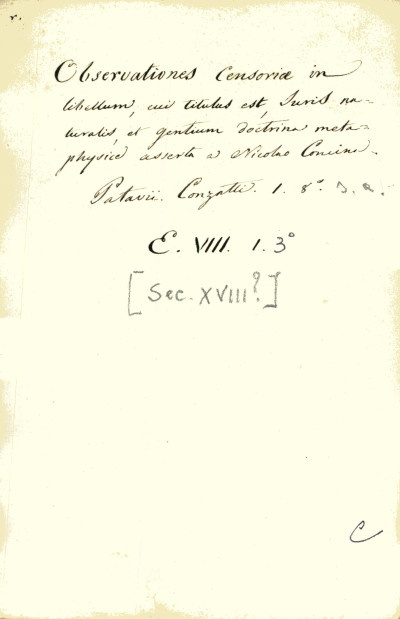 r.
Observationes Censoriæ in
libellum, cui titulus est, Juris na=
turalis, et gentium doctrina meta=
physicè asserta a Nicolao Concina.
Patavii. Conzatti. 1. 8.° s. a.
E. VIII. 1. 3°
[Sec. XVIII?]
C